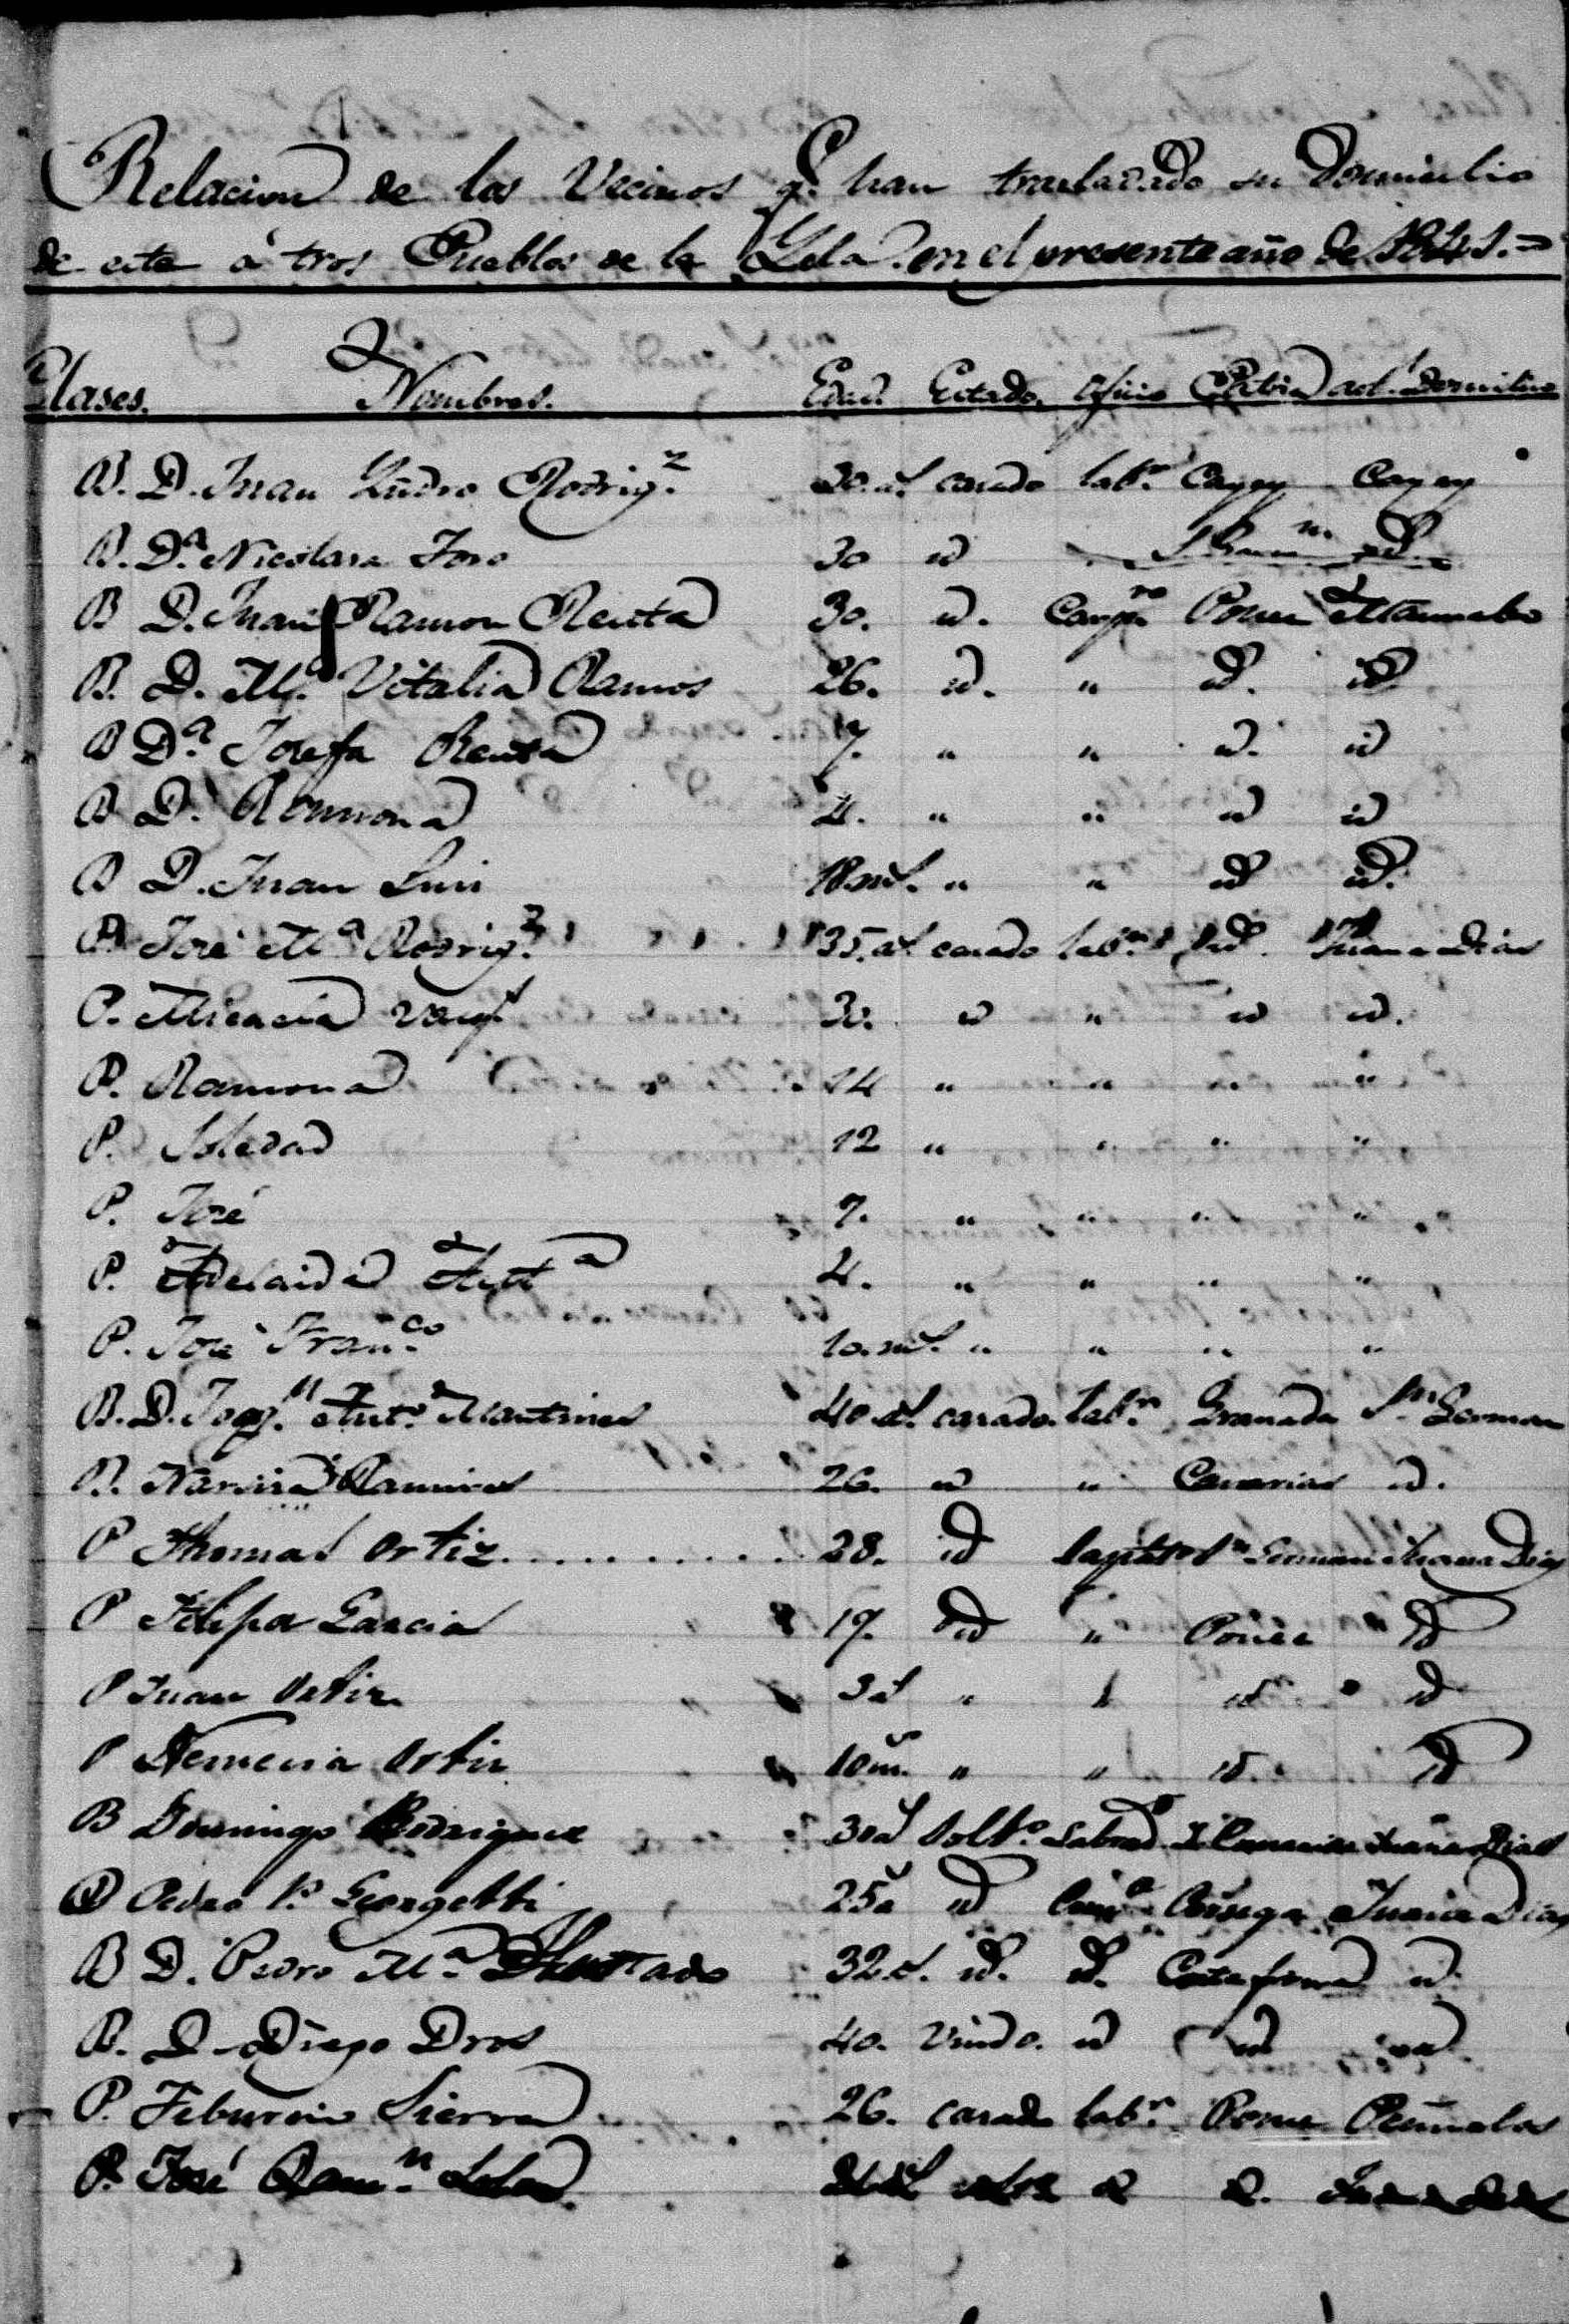 Relacion de los Vecinos q.e han trasladado su Domicilio
de este á otros Pueblos de la Ysla en el presente año de 1841.=
Clases. Nombres. Edad. Estado. Oficio Patria act. Domicilio
B. D. Juan Ysidro Rodrig.z 30. a.s casado lab.r Cayey Cayey
B. D.a Nicolasa Toro 30 id id
B D. Juan Ramon Renta 30. id. Camp.ro Ponce Maunabo
B. D. M.a Vitalia Ramos 26. id. " id. id.
B D.a Josefa Renta 7. " " id. id
B D.a Ramona 4. " " id id
B D. Juan Luis 18 m.s " " id id.
P. José M.a Rodrig.z 35. a.s casado lab.r id. Juana Dias
P. Micaela 30. id " id id.
P. Ramona 14 " " " "
P. Soledad 12 " " " "
P. José 7. " " " "
P. Adelaida Ant.a 4. " " " "
P. José Fran.co 10. m.s " " " "
B. D. Joaq.n Ant.o Martines 40 a.s casado lab.r Granada S.n German
B. Narcisa Ramires 26. id " Canarias id.
P Thomas Ortiz 28. id Sapat.o S.n German Juana Dias
P Felipa Garcia 17. id " Ponce id
P Juan Ortiz 3 a.s " " id id
P Nemecia Ortiz 10 m. " " id. id
B Domingo Rodriguez 30 a.s Solt.o Labrad.r Y. Canarias Juana Dias
B Pedro P. Georgetti 25 a id Com.o Corsega Juana Dias
B D. Pedro M.a Hurtado 32 a.s id. id. Costa firme id.
B. D. Diego Dros 40. Viudo. id id id
P. Tiburcio Sierra 26. casado lab.r Ponce Peñuelas
P. José Ram.n